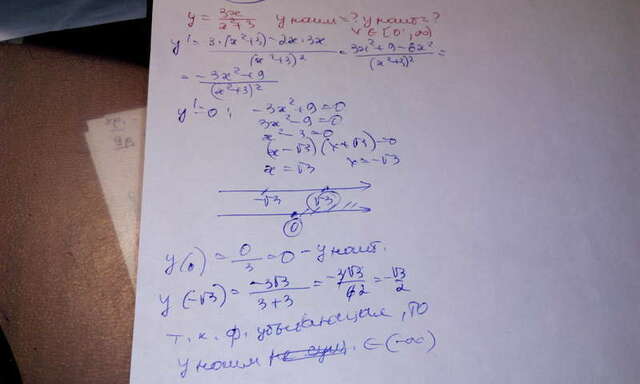 y = 3x/(x²+3) y наим = ? y наиб = ?
x ∈ [0; ∞)
y' = (3·(x²+3) - 2x·3x)/(x²+3)² = (3x²+9-6x²)/(x²+3)² =
= (-3x²+9)/(x²+3)²
y' = 0; -3x²+9=0
3x²-9=0
x²-3=0
(x-√3)(x+√3)=0
x = √3 x = -√3
-√3 √3
0
y(0) = 0/3 = 0 - y наиб.
y(-√3) = -3√3/(3+3) = -3√3/6 2 = -√3/2
т. к. ф. убывающая, то
y наим ∈ (-∞)